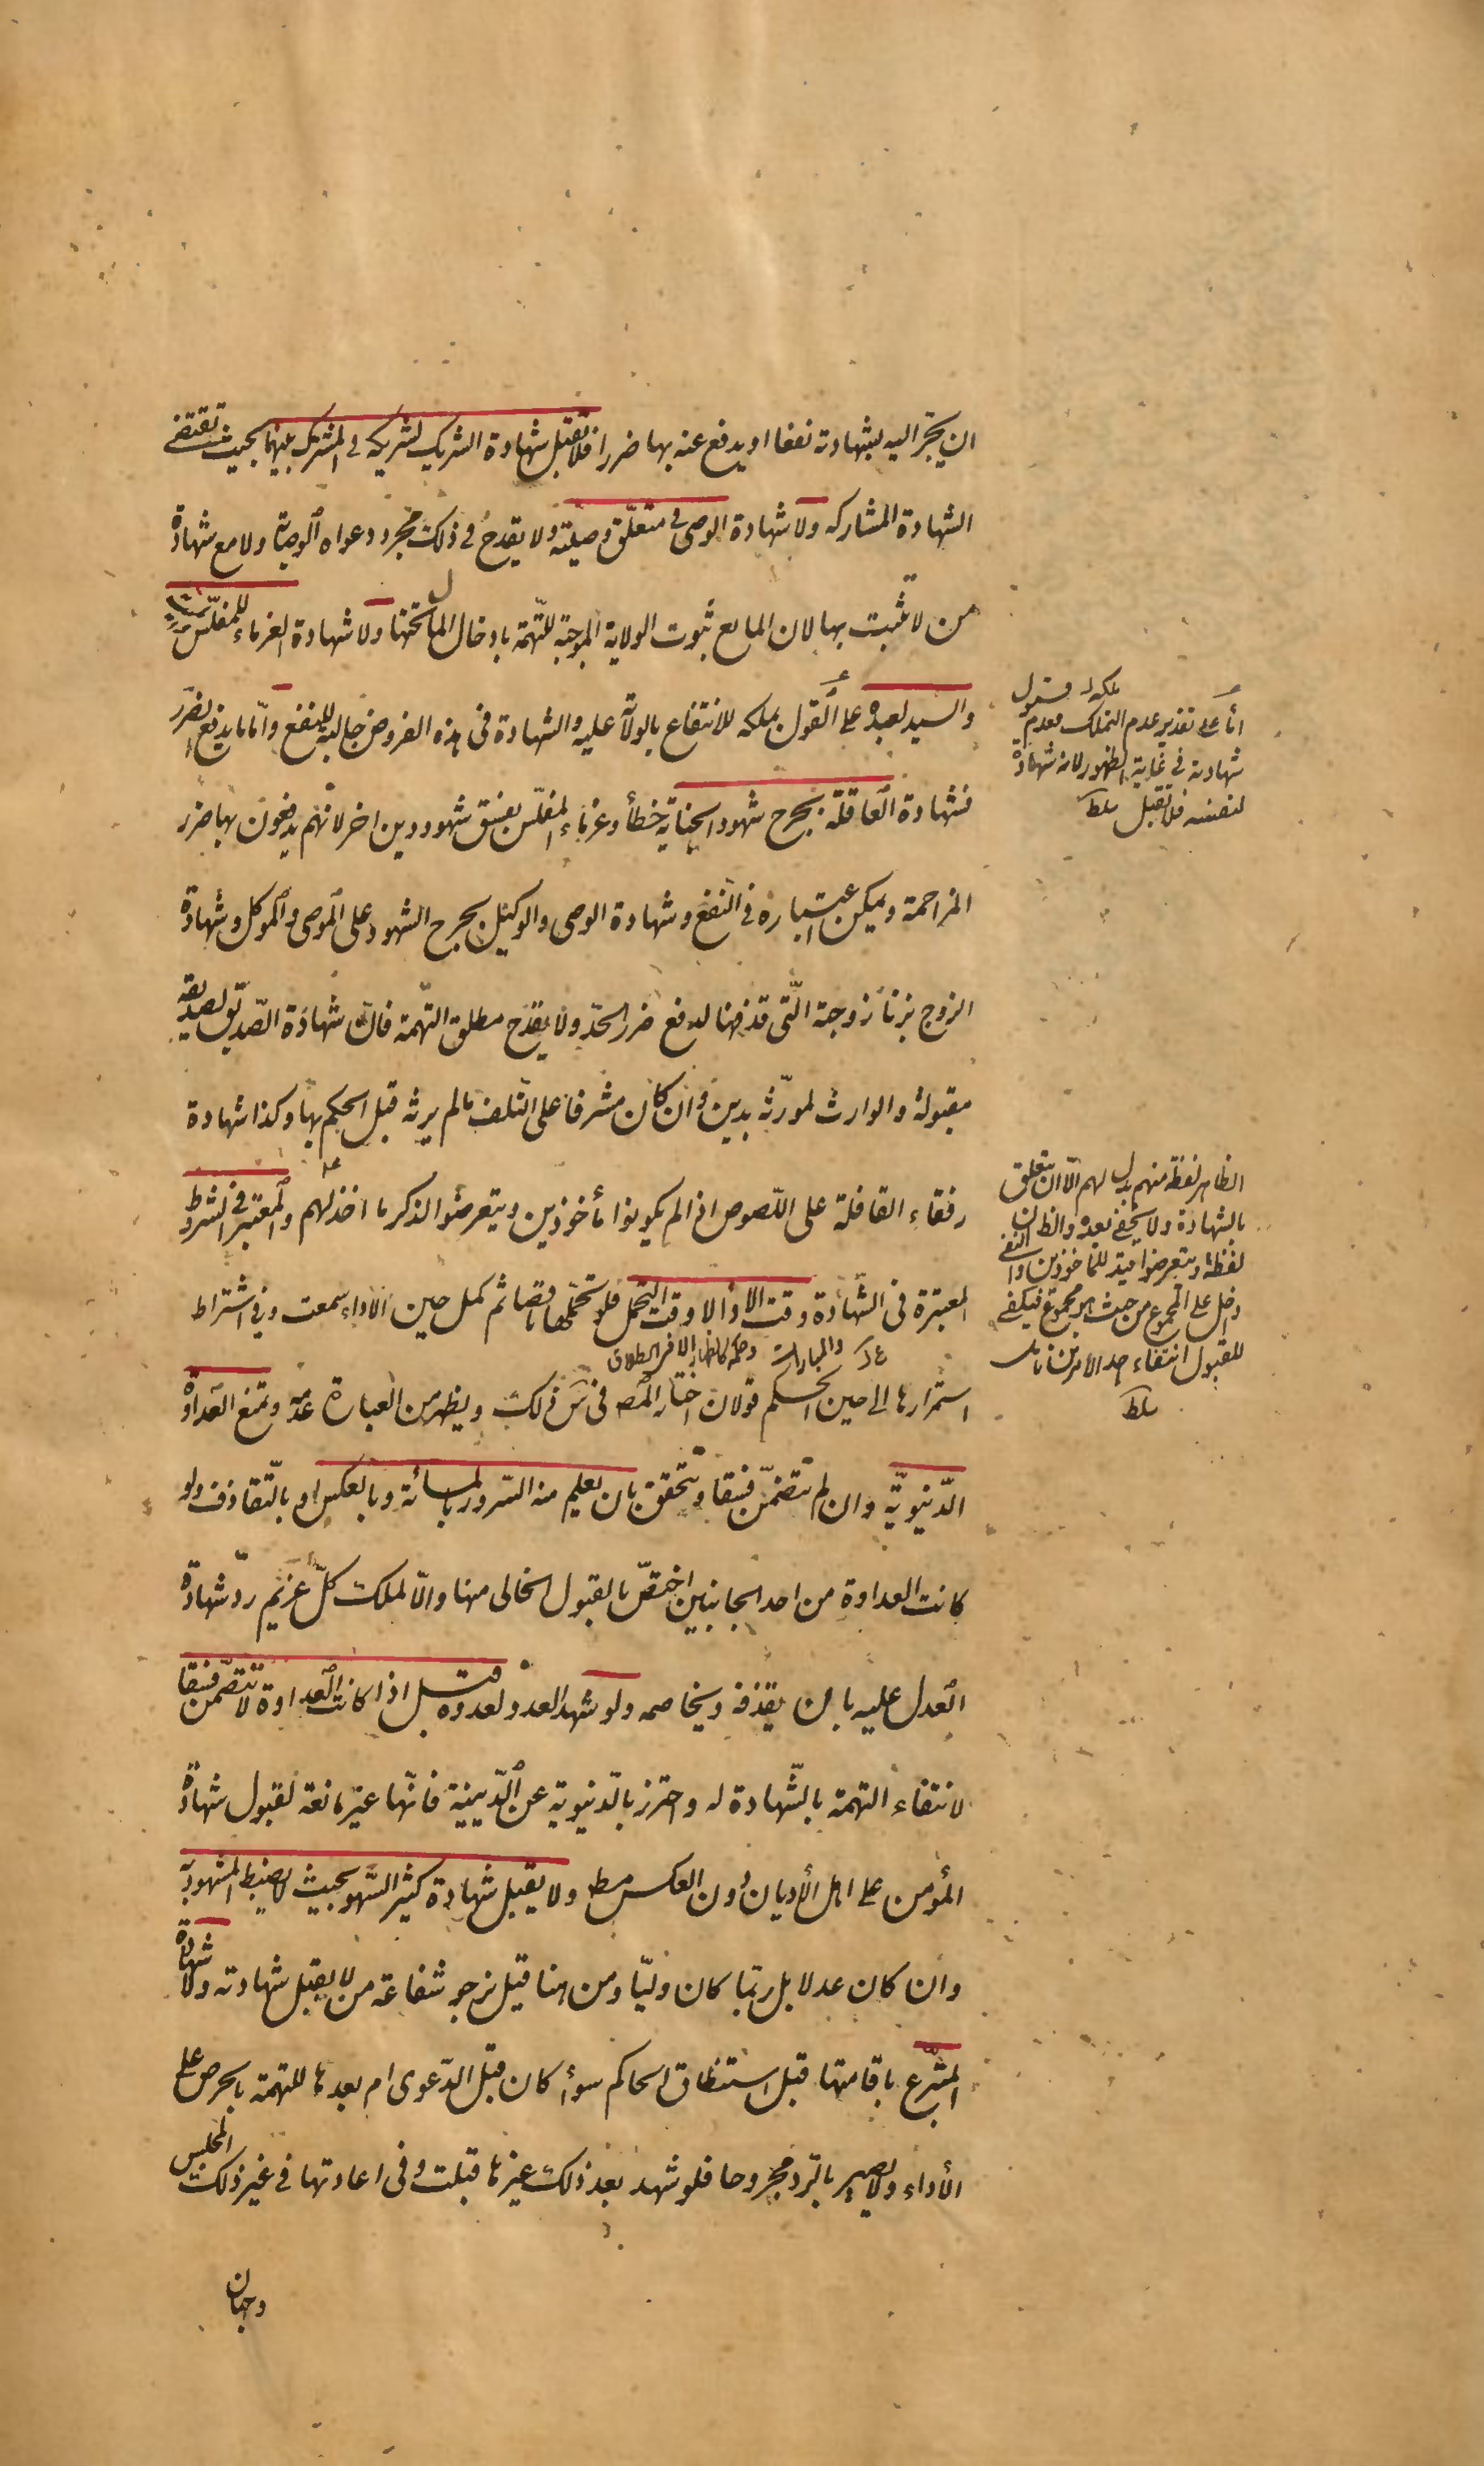 ان يجر اليه بشهادته نفعا او يدفع عنه بها ضررا فلا تقبل شهادة الشريك لشريكه في المشترك بينهما بحيث تقتضي
الشهادة المشاركه ولا شهادة الوصى في متعلق وصيته ولا يقدح في ذلك مجرد دعواه الوصاية ولا مع شهادة
من لا تثبت بها لان المانع ثبوت الولاية الموجبة للتهمة بادخال المال تحتها ولا شهادة الغرماء للمفلس
والسيد لعبده على القول بملكه للانتفاع بالولاية عليه والشهادة في هذه الفروض جالبة للنفع واما ما يدفع الضرر
فشهادة العاقلة بجرح شهود الجناية خطأ وغرماء المفلس بفسق شهود دين اخر لانهم يدفعون بها ضرر
المزاحمة ويمكن اعتباره في النفع وشهادة الوصى والوكيل بجرح الشهود على الموصى والموكل وشهادة
الزوج بزنا زوجته التي قذفها لدفع ضرر الحد ولا يقدح مطلق التهمة فان شهادة الصديق لصديقه
مقبولة والوارث لمورثه بدين وان كان مشرفا على التلف مالم يرثه قبل الحكم بها وكذا شهادة
رفقاء القافلة على اللصوص اذا لم يكونوا مأخوذين ويتعرضوا لذكر ما اخذ لهم والمعتبر في الشروط
المعتبرة في الشهادة وقت الاداء لا وقت التحمل فلو تحملها ناقصا ثم كمل حين الاداء سمعت وفي اشتراط
استمرارها الى حين الحكم قولان اختار المص في س ذلك ويظهر من العبارة عدمه وتمنع العداوة
الدنيوية وان لم تتضمن فسقا وتتحقق بان يعلم منه السرور بالمسائة وبالعكس او بالتقاذف ولو
كانت العداوة من احد الجانبين اختص بالقبول الخالى منها والا لملك كل غريم رد شهادة
العدل عليه بان يقذفه ويخاصمه ولو شهد العدو لعدوه قبل اذا كانت العداوة لا تتضمن فسقا
لانتفاء التهمة بالشهادة له واحترز بالدنيوية عن الدينية فانها غير مانعة لقبول شهادة
المؤمن على اهل الأديان دون العكس مط ولا يقبل شهادة كثير السهو بحيث لا يضبط المشهود به
وان كان عدلا بل ربما كان وليا ومن هنا قيل نرجو شفاعة من لا يقبل شهادته ولا شهادة
المتبرع باقامتها قبل استنطاق الحاكم سوأ كان قبل الدعوى ام بعدها للتهمة بالحرص على
الأداء ولا يصير بالرد مجروحا فلو شهد بعد ذلك غيرها قبلت وفي اعادتها في غير ذلك المجلس
وجهان
اما على تقدير عدم التملك فعدم قبول
شهادته في غاية الظهور لانه شهادة
لنفسه فلا تقبل سلط
الظاهر لفظة منهم بدل لهم الا ان يتعلق
بالشهادة ولا يخفى بعده والظ ان
لفظة ويتعرضوا قيد للمأخوذين والنفي
دخل على المجموع من حيث هو مجموع فيكفى
للقبول انتفاء احد الامرين تأمل
سلط